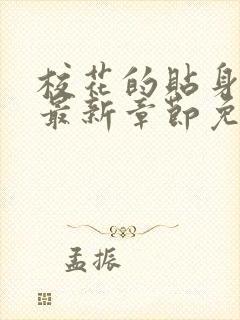 校花的贴身
最新章节免
孟振